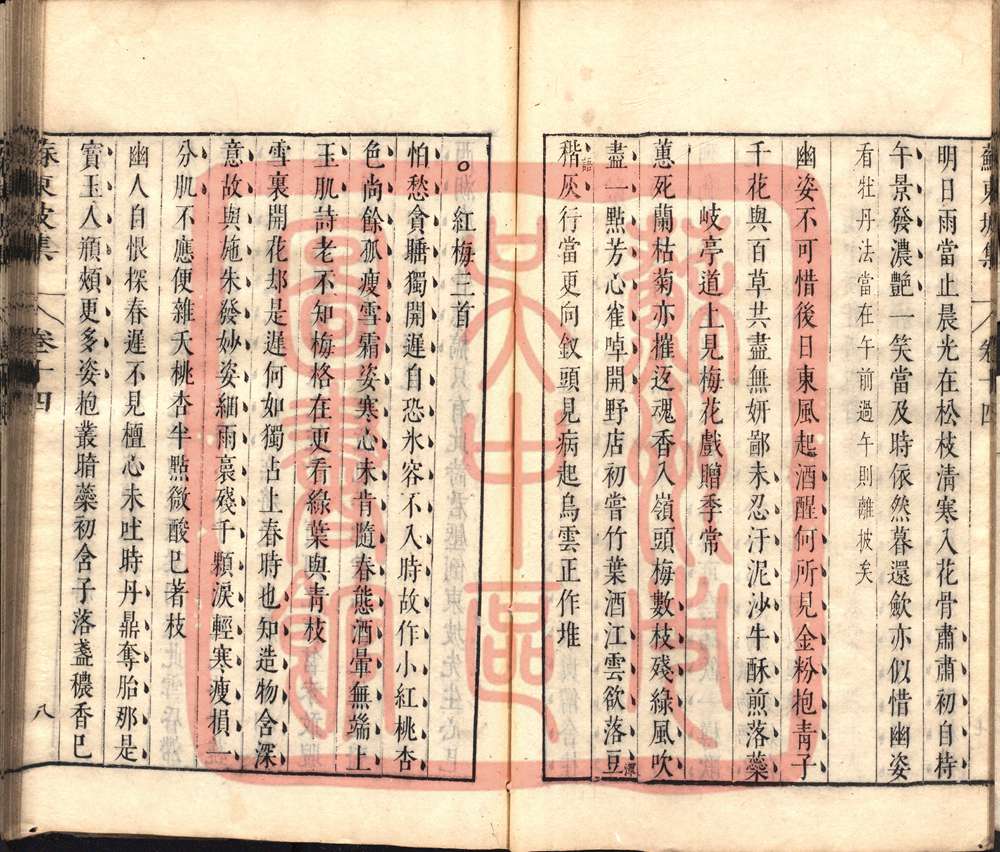 蘇東坡集 卷十四
明日雨當止晨光在松枝清寒入花骨肅肅初自持
午景發濃艷一笑當及時依然暮還歛亦似惜幽姿
看牡丹法當在午前過午則離披矣
幽姿不可惜後日東風起酒醒何所見金粉抱青子
千花與百草共盡無妍鄙未忍汙泥沙牛酥煎落蘂
岐亭道上見梅花戲贈季常
蕙死蘭枯菊亦摧返魂香入嶺頭梅數枝殘綠風吹
盡一點芳心雀啅開野店初嘗竹葉酒江雲欲落豆
稭灰行當更向釵頭見病起烏雲正作堆
紅梅三首
怕愁貪睡獨開遲自恐氷容不入時故作小紅桃杏
色尚餘孤瘦雪霜姿寒心未肯隨春態酒暈無端上
玉肌詩老不知梅格在更看綠葉與青枝
雪裏開花却是遲何如獨占上春時也知造物含深
意故與施朱發妙姿細雨裛殘千顆淚輕寒瘦損一
分肌不應便雜夭桃杏半點微酸已著枝
幽人自恨探春遲不見檀心未吐時丹鼎奪胎那是
寳玉人頩頰更多姿抱叢暗蘂初含子落盞穠香已
蘇東坡集 卷十四 八